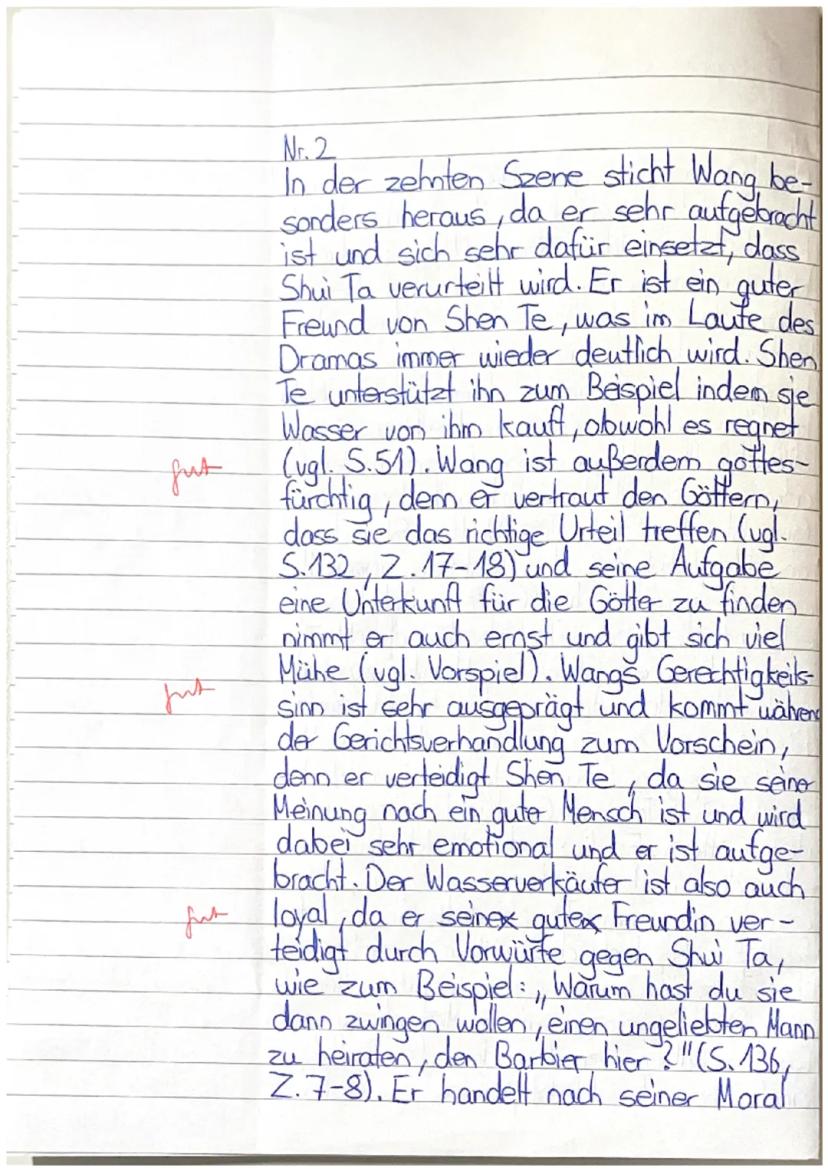 Nr. 2
In der zehnten Szene sticht Wang be-
sonders heraus, da er sehr aufgebracht
ist und sich sehr dafür einsetzt, dass
Shui Ta verurteilt wird. Er ist ein guter
Freund von Shen Te, was im Laufe des
Dramas immer wieder deutlich wird. Shen
Te unterstützt ihn zum Beispiel indem sie
Wasser von ihm kauft, obwohl es regnet
gut (vgl. S.51). Wang ist außerdem gottes-
fürchtig, denn er vertraut den Göttern,
dass sie das richtige Urteil treffen (vgl.
S.132, Z.17-18) und seine Aufgabe
eine Unterkunft für die Götter zu finden
nimmt er auch ernst und gibt sich viel
Mühe (vgl. Vorspiel). Wangs Gerechtigkeits-
gut sinn ist sehr ausgeprägt und kommt währen
der Gerichtsverhandlung zum Vorschein,
denn er verteidigt Shen Te, da sie seiner
Meinung nach ein guter Mensch ist und wird
dabei sehr emotional und er ist aufge-
bracht. Der Wasserverkäufer ist also auch
gut loyal, da er seine gute Freundin ver-
teidigt durch Vorwürfe gegen Shui Ta,
wie zum Beispiel: „Warum hast du sie
dann zwingen wollen, einen ungeliebten Mann
zu heiraten, den Barbier hier?" (S.136,
Z.7-8). Er handelt nach seiner Moral